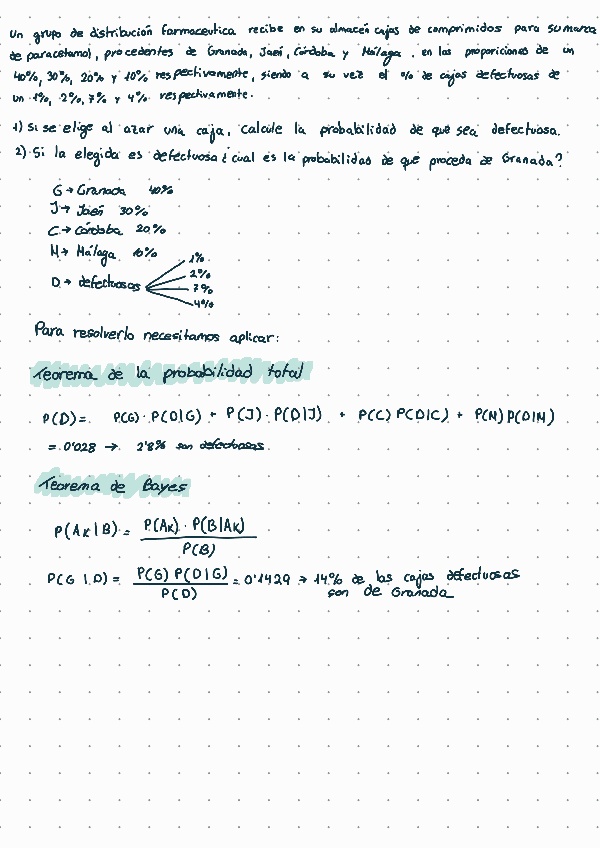 Un grupo de distribución farmaceutica recibe en su almacén cajas de comprimidos para su marca
de paracetamol, procedentes de Granada, Jaén, Córdoba y Málaga, en las proporciones de un
40%, 30%, 20% y 10% respectivamente, siendo a su vez el % de cajas defectuosas de
un 1%, 2%, 7% y 4% respectivamente.
1) Si se elige al azar una caja, calcule la probabilidad de que sea defectuosa.
2) Si la elegida es defectuosa ¿cual es la probabilidad de que proceda de Granada?
G → Granada 40%
J → Jaén 30%
C → Córdoba 20%
M → Málaga 10%
D → defectuosas
1%
2%
7%
4%
Para resolverlo necesitamos aplicar:
Teorema de la probabilidad total
P(D) = P(G) · P(D|G) + P(J) · P(D|J) + P(C) P(D|C) + P(M) P(D|M)
= 0'028 → 2'8% son defectuosas
Teorema de Bayes
P(Ak|B) = P(Ak) · P(B|Ak) / P(B)
P(G|D) = P(G) P(D|G) / P(D) = 0'1429 → 14% de las cajas defectuosas
son de Granada